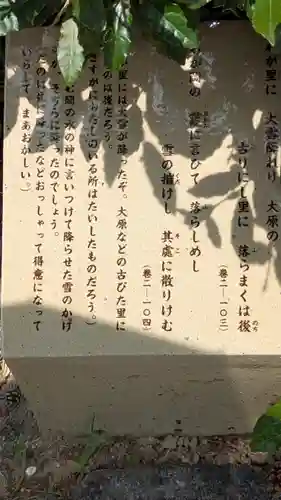 が里に 大雪降れり 大原の
古りにし里に 落らまくは後
のち
(巻二―一〇三)
に言ひて 落らしめし
雪の摧けし 其處に散りけむ
くだ
そこ
(巻二―一〇四)
里には大雪が降ったぞ。大原などの古びた里に
のは後だろう。
さすがにわたしのいる所はたいしたものだろう。)
の水の神に言いつけて降らせた雪のかけ
が、そちらに降ったのでしょう。
のに降ったなどおっしゃって得意になって
いらして、まあおかしい。)